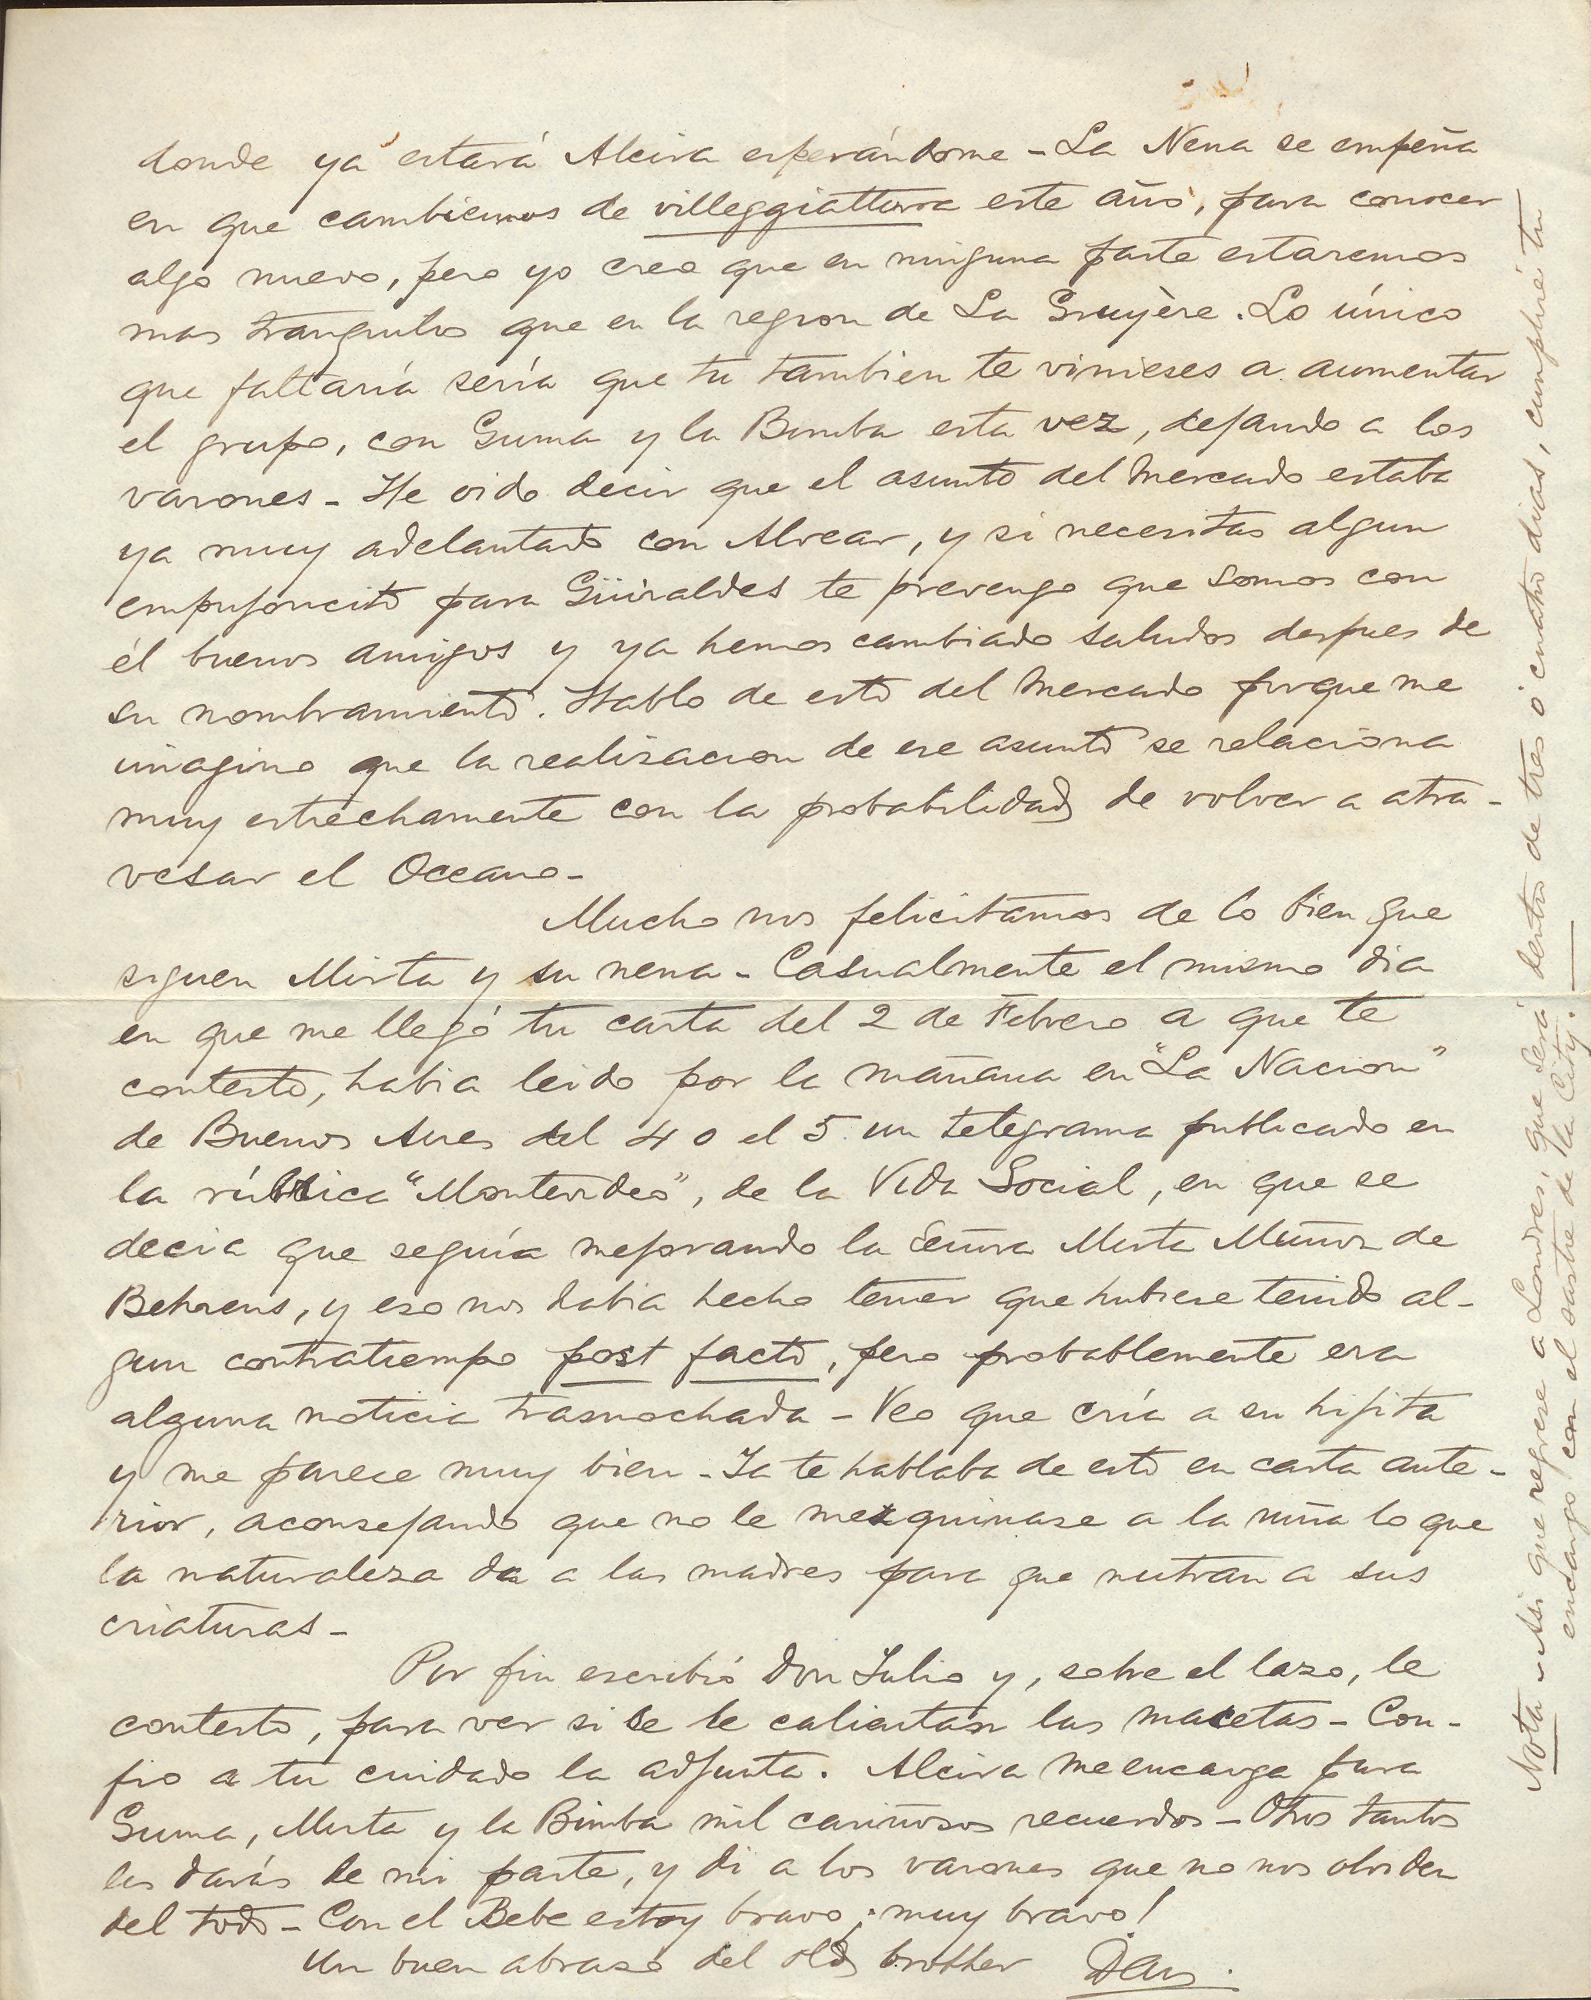 donde ya estará Alcira esperándome - La Nena se empeña
en que cambiemos de villeggiattura este año, para conocer
algo nuevo, pero yo creo que en ninguna parte estaremos
mas tranquilos que en la region de La Gruyère. Lo único
que faltaría sería que tu tambien te vinieses a aumentar
el grupo, con Guma y la Bimba esta vez, dejando a los
varones - He oido decir que el asunto del Mercado estaba
ya muy adelantado con Alvear, y si necesitas algun
empujoncito para Güiraldes te prevengo que somos con
él buenos amigos y ya hemos cambiado saludos despues de
su nombramiento. Hablo de esto del Mercado porque me
imagino que la realisacion de ese asunto se relaciona
muy estrechamente con la probabilidad de volver a atra-
vesar el Oceano -
Mucho nos felicitamos de lo bien que
siguen Mirta y su nena - Casualmente el mismo dia
en que me llegó tu carta del 2 de Febrero a que te
contesto, habia leido por la mañana en "La Nacion"
de Buenos Aires del 4 o el 5 un telegrama publicado en
la rúbrica "Montevideo", de la Vida Social, en que se
decia que seguía mejorando la Señora Mirta Muñoz de
Behrens, y eso nos habia hecho temer que hubiese tenido al-
gun contratiempo post facto, pero probablemente era
alguna noticia trasnochada - Veo que cría a su hijita
y me parece muy bien - Ya te hablaba de esto en carta ante-
rior, aconsejando que no le mezquinase a la niña lo que
la naturaleza da a las madres para que nutran a sus
criaturas -
Por fin escribió Don Julio y, sobre el lazo, le
contesto, para ver si se le calientan las macetas - Con-
fio a tu cuidado la adjunta. Alcira me encarga para
Guma, Mirta y la Bimba mil cariñosos recuerdos - Otros tantos
les darás de mi parte, y di a los varones que no nos olviden
del todo - Con el Bebe estoy bravo ¡muy bravo!
Un buen abraso del old brother Dan.
Nota - Asi que regrese a Londres, que será dentro de tres o cuatro dias, cumpliré tu
encargo con el sastre de la City. -